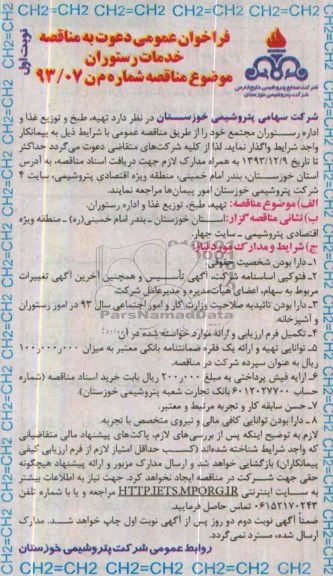 CH2=CH2 CH2=CH2 CH2=CH2 CH2=CH2 CH2=CH2
نوبت اول
فراخوان عمومی دعوت به مناقصه
خدمات رستوران
موضوع مناقصه شماره م‌ن ۹۳/۰۷
شرکت صنایع پتروشیمی خلیج فارس
شرکت پتروشیمی خوزستان
شرکت سهامی پتروشیمی خوزستان در نظر دارد تهیه، طبخ و توزیع غذا و
اداره رستوران مجتمع خود را از طریق مناقصه عمومی با شرایط ذیل به پیمانکار
واجد شرایط واگذار نماید. لذا از کلیه شرکت‌های متقاضی دعوت می‌گردد حداکثر
تا تاریخ ۱۳۹۳/۱۲/۹ به همراه مدارک لازم جهت دریافت اسناد مناقصه، به آدرس
استان خوزستان، بندر امام خمینی، منطقه ویژه اقتصادی پتروشیمی، سایت ۴
شرکت پتروشیمی خوزستان امور پیمان‌ها مراجعه نمایند.
الف) موضوع مناقصه: تهیه، طبخ، توزیع غذا و اداره رستوران.
ب) نشانی مناقصه گزار: استان خوزستان ـ بندر امام خمینی(ره) ـ منطقه ویژه
اقتصادی پتروشیمی ـ سایت چهار.
ج) شرایط و مدارک مورد نیاز:
۱ـ دارا بودن شخصیت حقوقی
۲ـ فتوکپی اساسنامه شرکت، آگهی تأسیس و همچنین آخرین آگهی تغییرات
مربوط به سهام، اعضای هیأت‌مدیره و مدیرعامل شرکت.
۳ـ دارا بودن تائیدیه صلاحیت وزارت کار و امور اجتماعی سال ۹۳ در امور رستوران
و آشپزخانه.
۴ـ تکمیل فرم ارزیابی و ارائه موارد خواسته شده در آن
۵ـ توانایی تهیه و ارائه یک فقره ضمانتنامه بانکی معتبر به میزان ۱۰۰٫۰۰۰٫۰۰۰
ریال به عنوان سپرده شرکت در مناقصه.
۶ـ ارایه فیش پرداختی به مبلغ ۲۰۰٫۰۰۰ ریال بابت خرید اسناد مناقصه (شماره
حساب ۶۰۱۳۰۲۷۷۰۰ بانک تجارت شعبه پتروشیمی خوزستان).
۷ـ حسن سابقه کار و تجربه مرتبط و معتبر.
۸ـ دارا بودن توانایی کافی مالی و نیروی متخصص با تجربه.
لازم به توضیح اینکه پس از بررسی‌های لازم، پاکت‌های پیشنهاد مالی متقاضیانی
که واجد شرایط شناخته شده‌اند (کسب حداقل امتیاز لازم از فرم ارزیابی کیفی
پیمانکاران) بازگشایی خواهد شد و ارسال مدارک مزبور و ارائه پیشنهاد هیچگونه
حقی جهت شرکت در مناقصه ایجاد نخواهد کرد. جهت نیاز به اطلاعات بیشتر
به سایت اینترنتی HTTP.IETS.MPORG.IR مراجعه و یا با شماره تلفن
۰۶۱۵۲۱۷۰۲۴۳ تماس حاصل فرمایید.
ضمناً آگهی نوبت دوم دو روز پس از آگهی نوبت اول چاپ خواهد شد. مدارک
ارسال شده، مسترد نمی‌گردد.
روابط عمومی شرکت پتروشیمی خوزستان
ParsNamadData